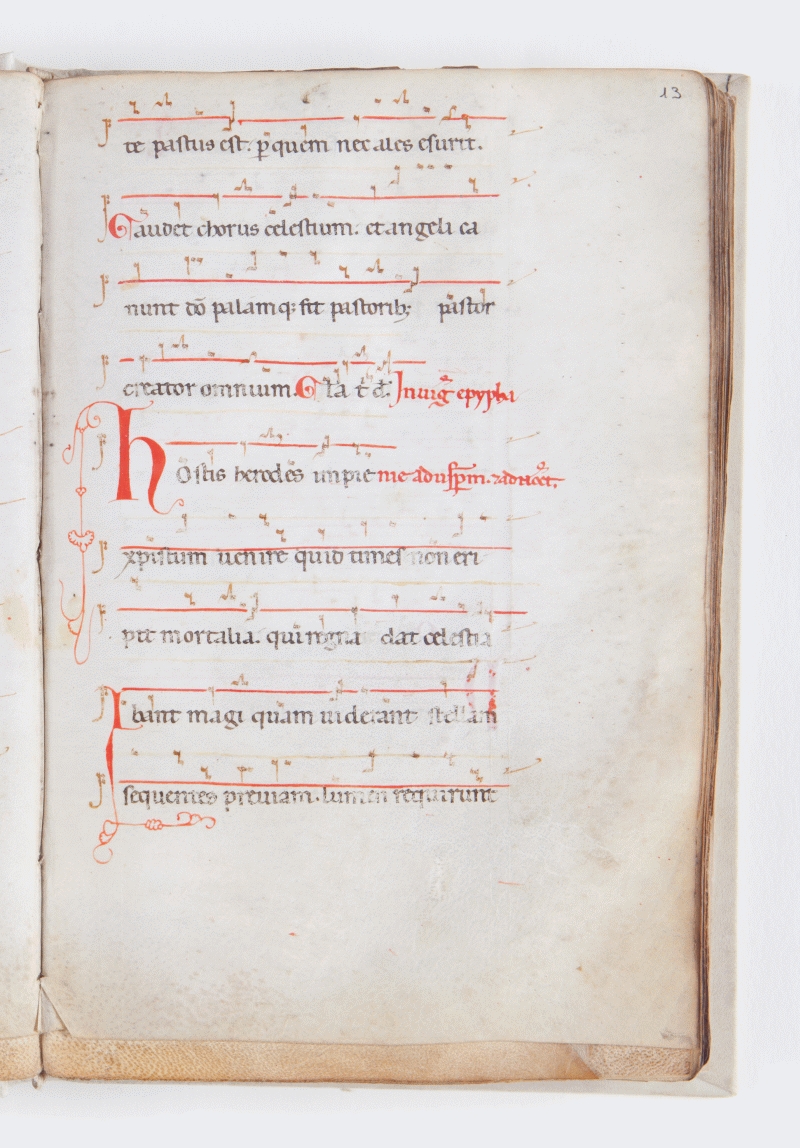 13
te pastus est. ꝑquem nec ales esurit.
Gaudet chorus celestium. et angeli ca
nunt dō palamq; fit pastorib; pastor
creator omnium. Gl̄a t̄ d̄. In uig̊ epyphı
Hostis herodes impie me adusp̄m. ⁊adnoct̄.
xp̄istum uenire quid times non eri
pit mortalia. qui regna dat celestia
Ibant magi quam uiderant stellam
sequentes preuiam. lumen requirunt